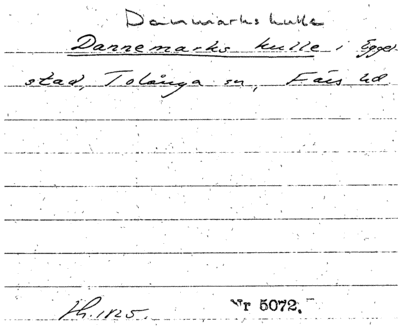 Danmarkskulle
Dannemarks kulle i Egge-
stad, Tolånga sn, Färs hd.
Lh. 1825. Nr 5072.